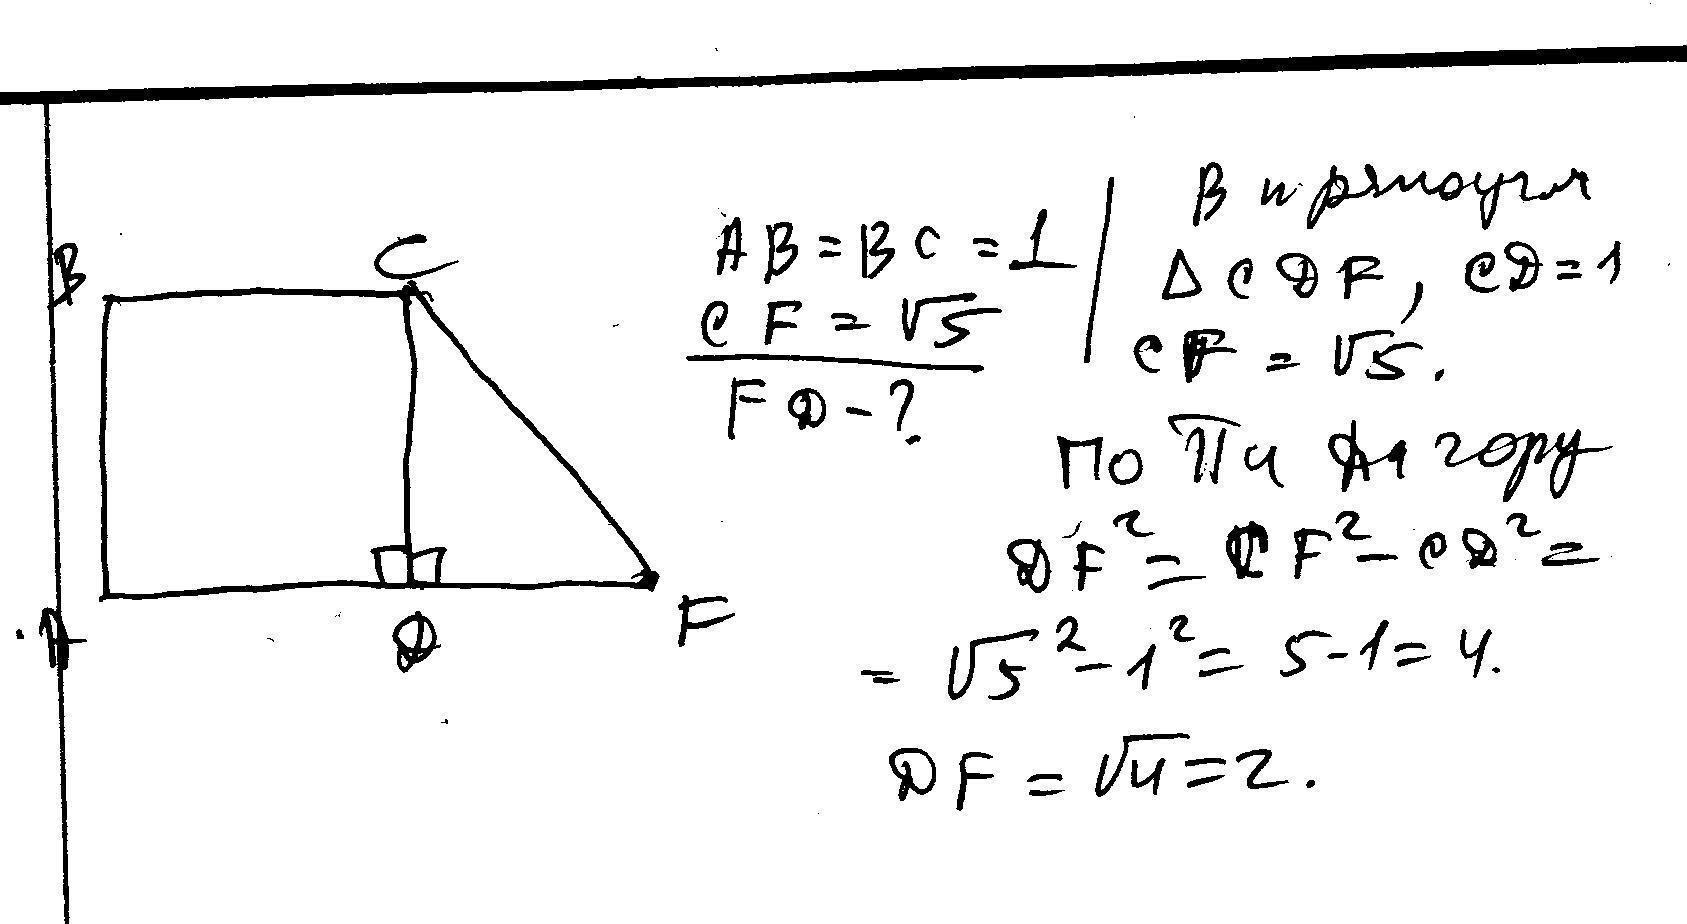 B
C
A
D
F
AB = BC = 1
CF = √5
FD - ?
В прямоугл
Δ CDF, CD = 1
CF = √5.
По Пифагору
DF² = CF² - CD² =
= √5² - 1² = 5 - 1 = 4.
DF = √4 = 2.